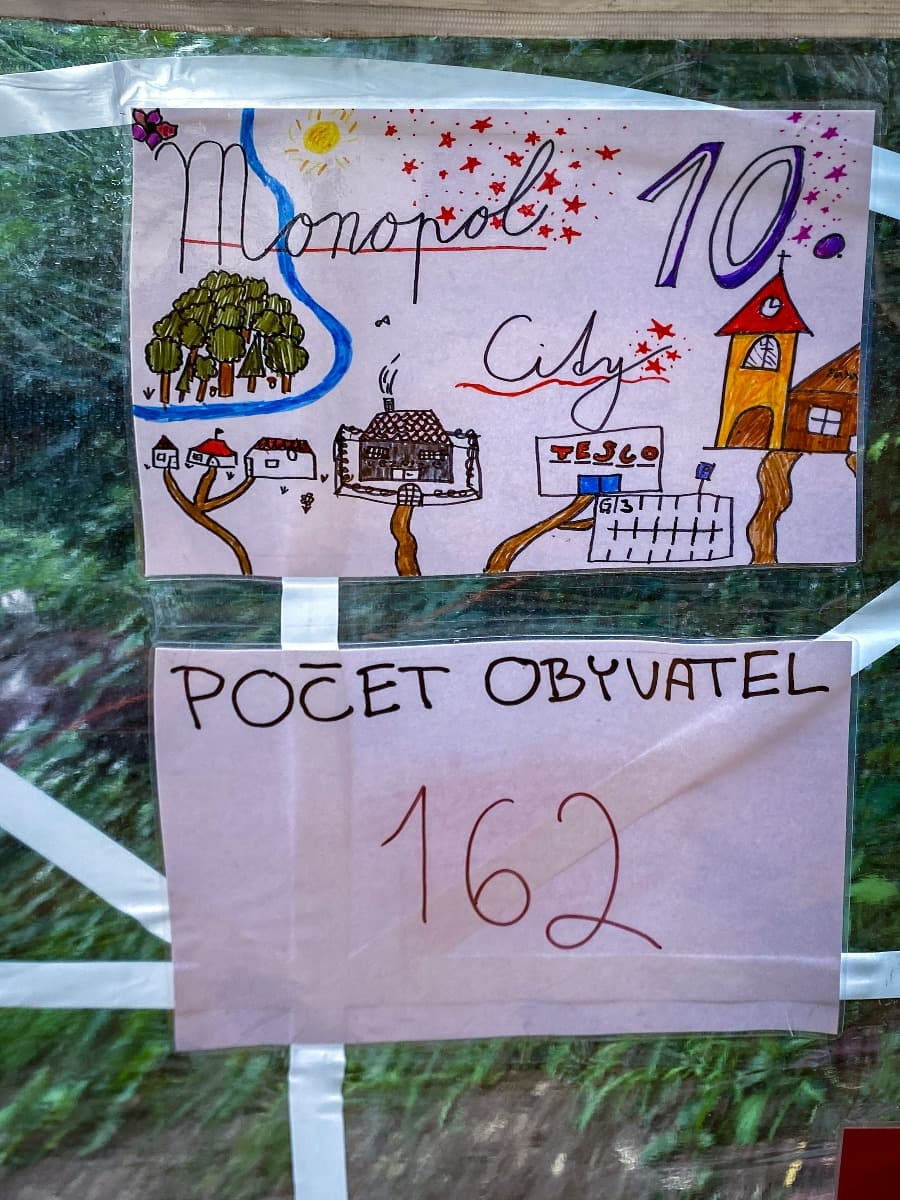 Monopol 10.
City
TESCO
G/3
POČET OBYVATEL
162